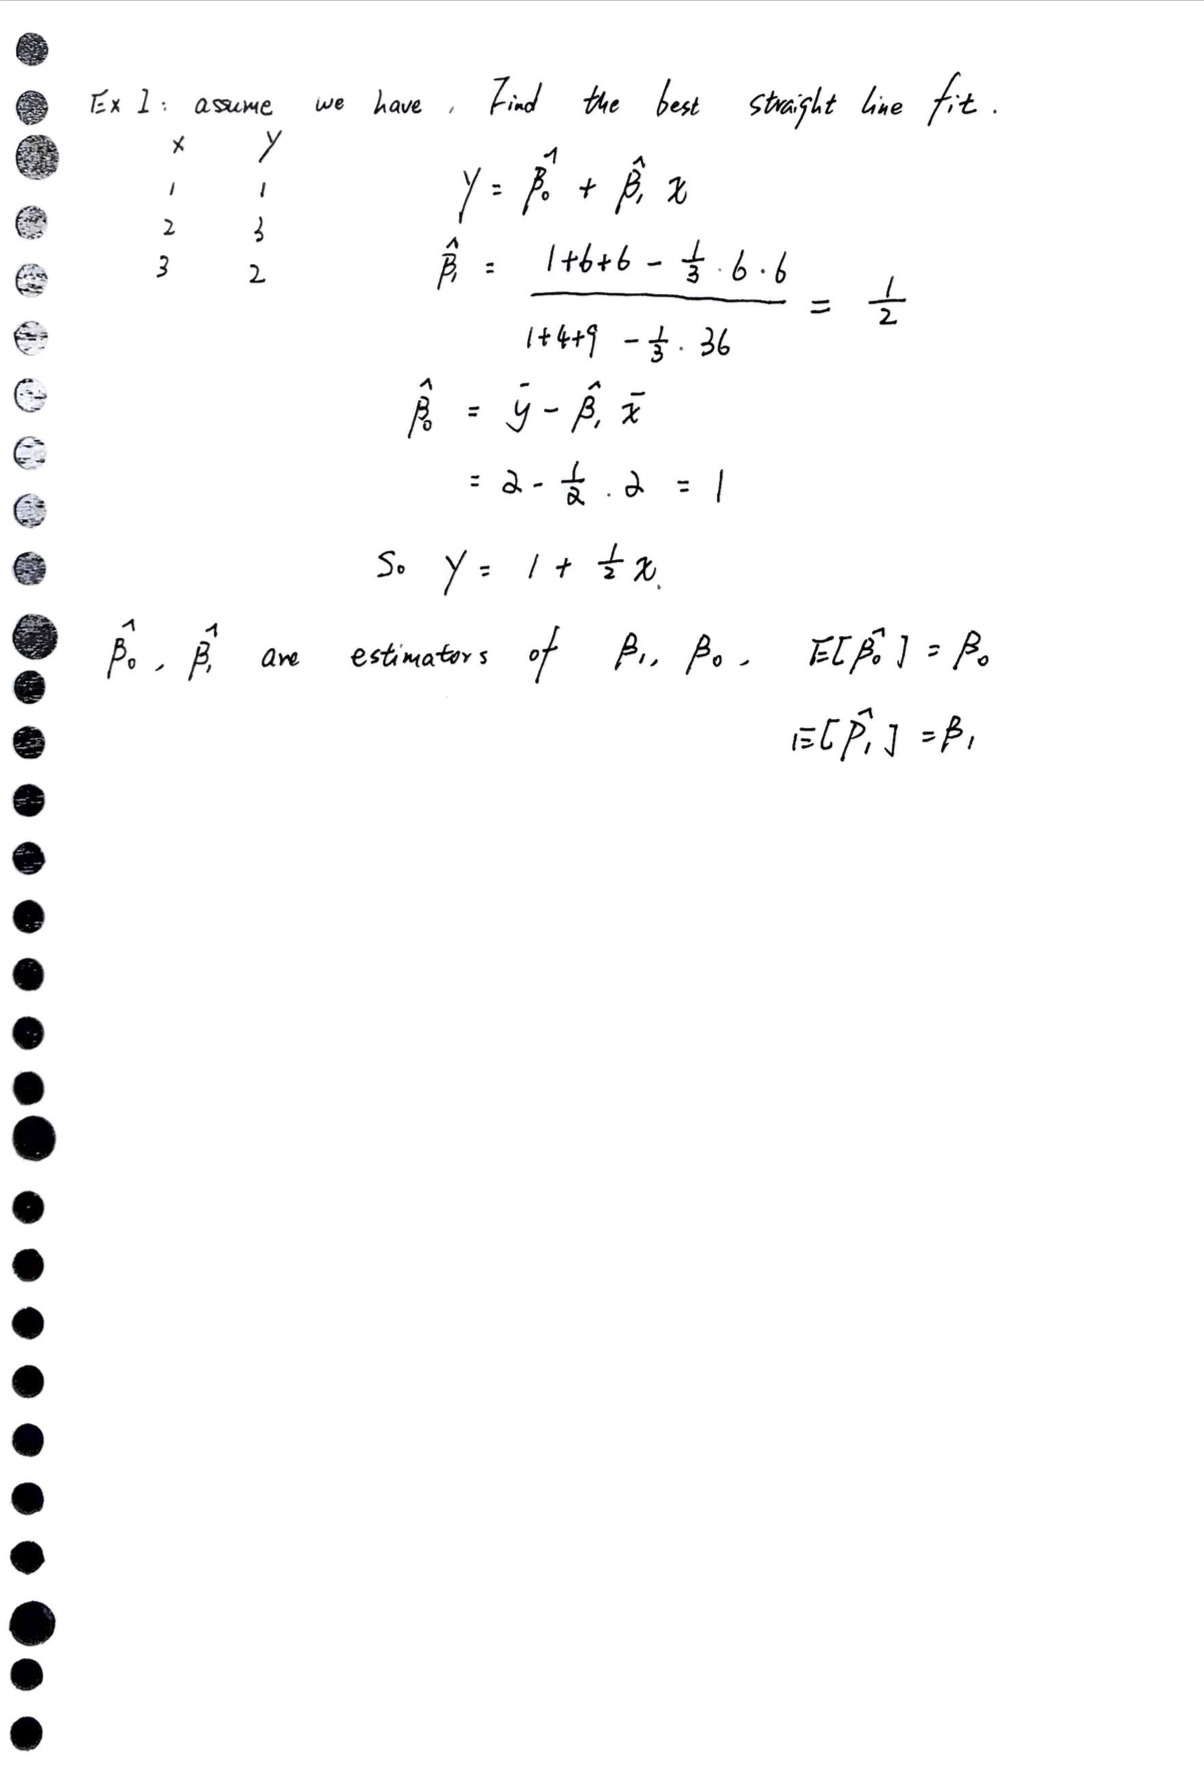 Ex 1: assume we have, Find the best straight line fit.
x y
1 1
2 3
3 2
y = β̂₀ + β̂₁ x
β̂₁ = (1+6+6 - 1/3 · 6 · 6) / (1+4+9 - 1/3 · 36) = 1/2
β̂₀ = ȳ - β̂₁ x̄
= 2 - 1/2 · 2 = 1
So y = 1 + 1/2 x.
β̂₀, β̂₁ are estimators of β₁, β₀, E[β̂₀] = β₀
E[β̂₁] = β₁